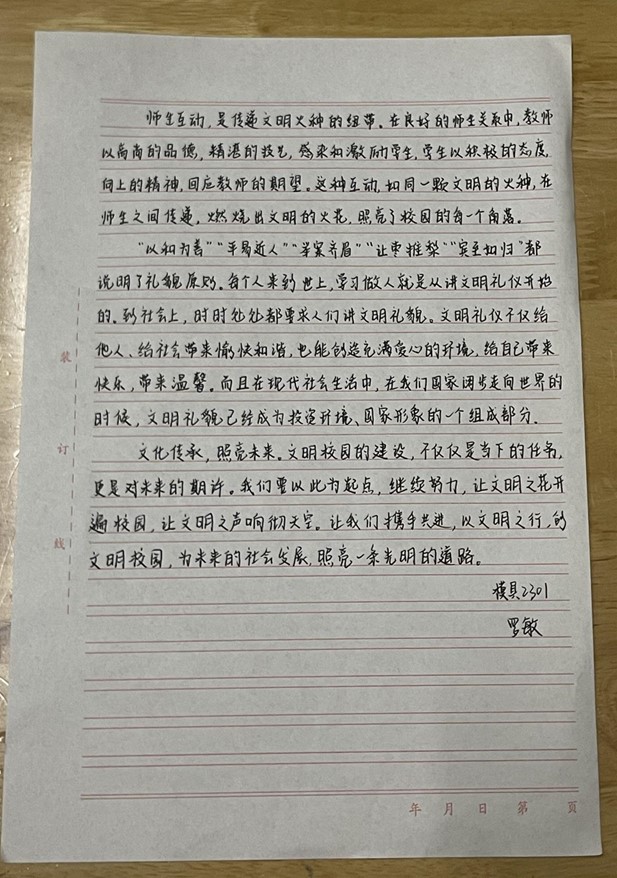 师生互动，是传递文明火种的纽带。在良好的师生关系中，教师
以高尚的品德，精湛的技艺，感染和激励学生，学生以积极的态度，
向上的精神，回应教师的期望。这种互动，如同一颗文明的火种，在
师生之间传递，燃烧出文明的火花，照亮了校园的每一个角落。
“以和为善”“平易近人”“举案齐眉”“让枣推梨”“宾至如归”都
说明了礼貌原则。每个人来到世上，学习做人就是从讲文明礼仪开始
的。到社会上，时时处处都要求人们讲文明礼貌。文明礼仪不仅给
他人、给社会带来愉快和谐，也能创造充满爱心的环境，给自己带来
快乐，带来温馨。而且在现代社会生活中，在我们国家阔步走向世界的
时候，文明礼貌已经成为投资环境、国家形象的一个组成部分.
文化传承，照亮未来。文明校园的建设，不仅仅是当下的任务，
更是对未来的期许。我们要以此为起点，继续努力，让文明之花开
遍校园，让文明之声响彻天宇。让我们携手共进，以文明之行，创
文明校园，为未来的社会发展，照亮一条光明的道路。
模具2301
罗敏
装
订
线
年 月 日 第 页